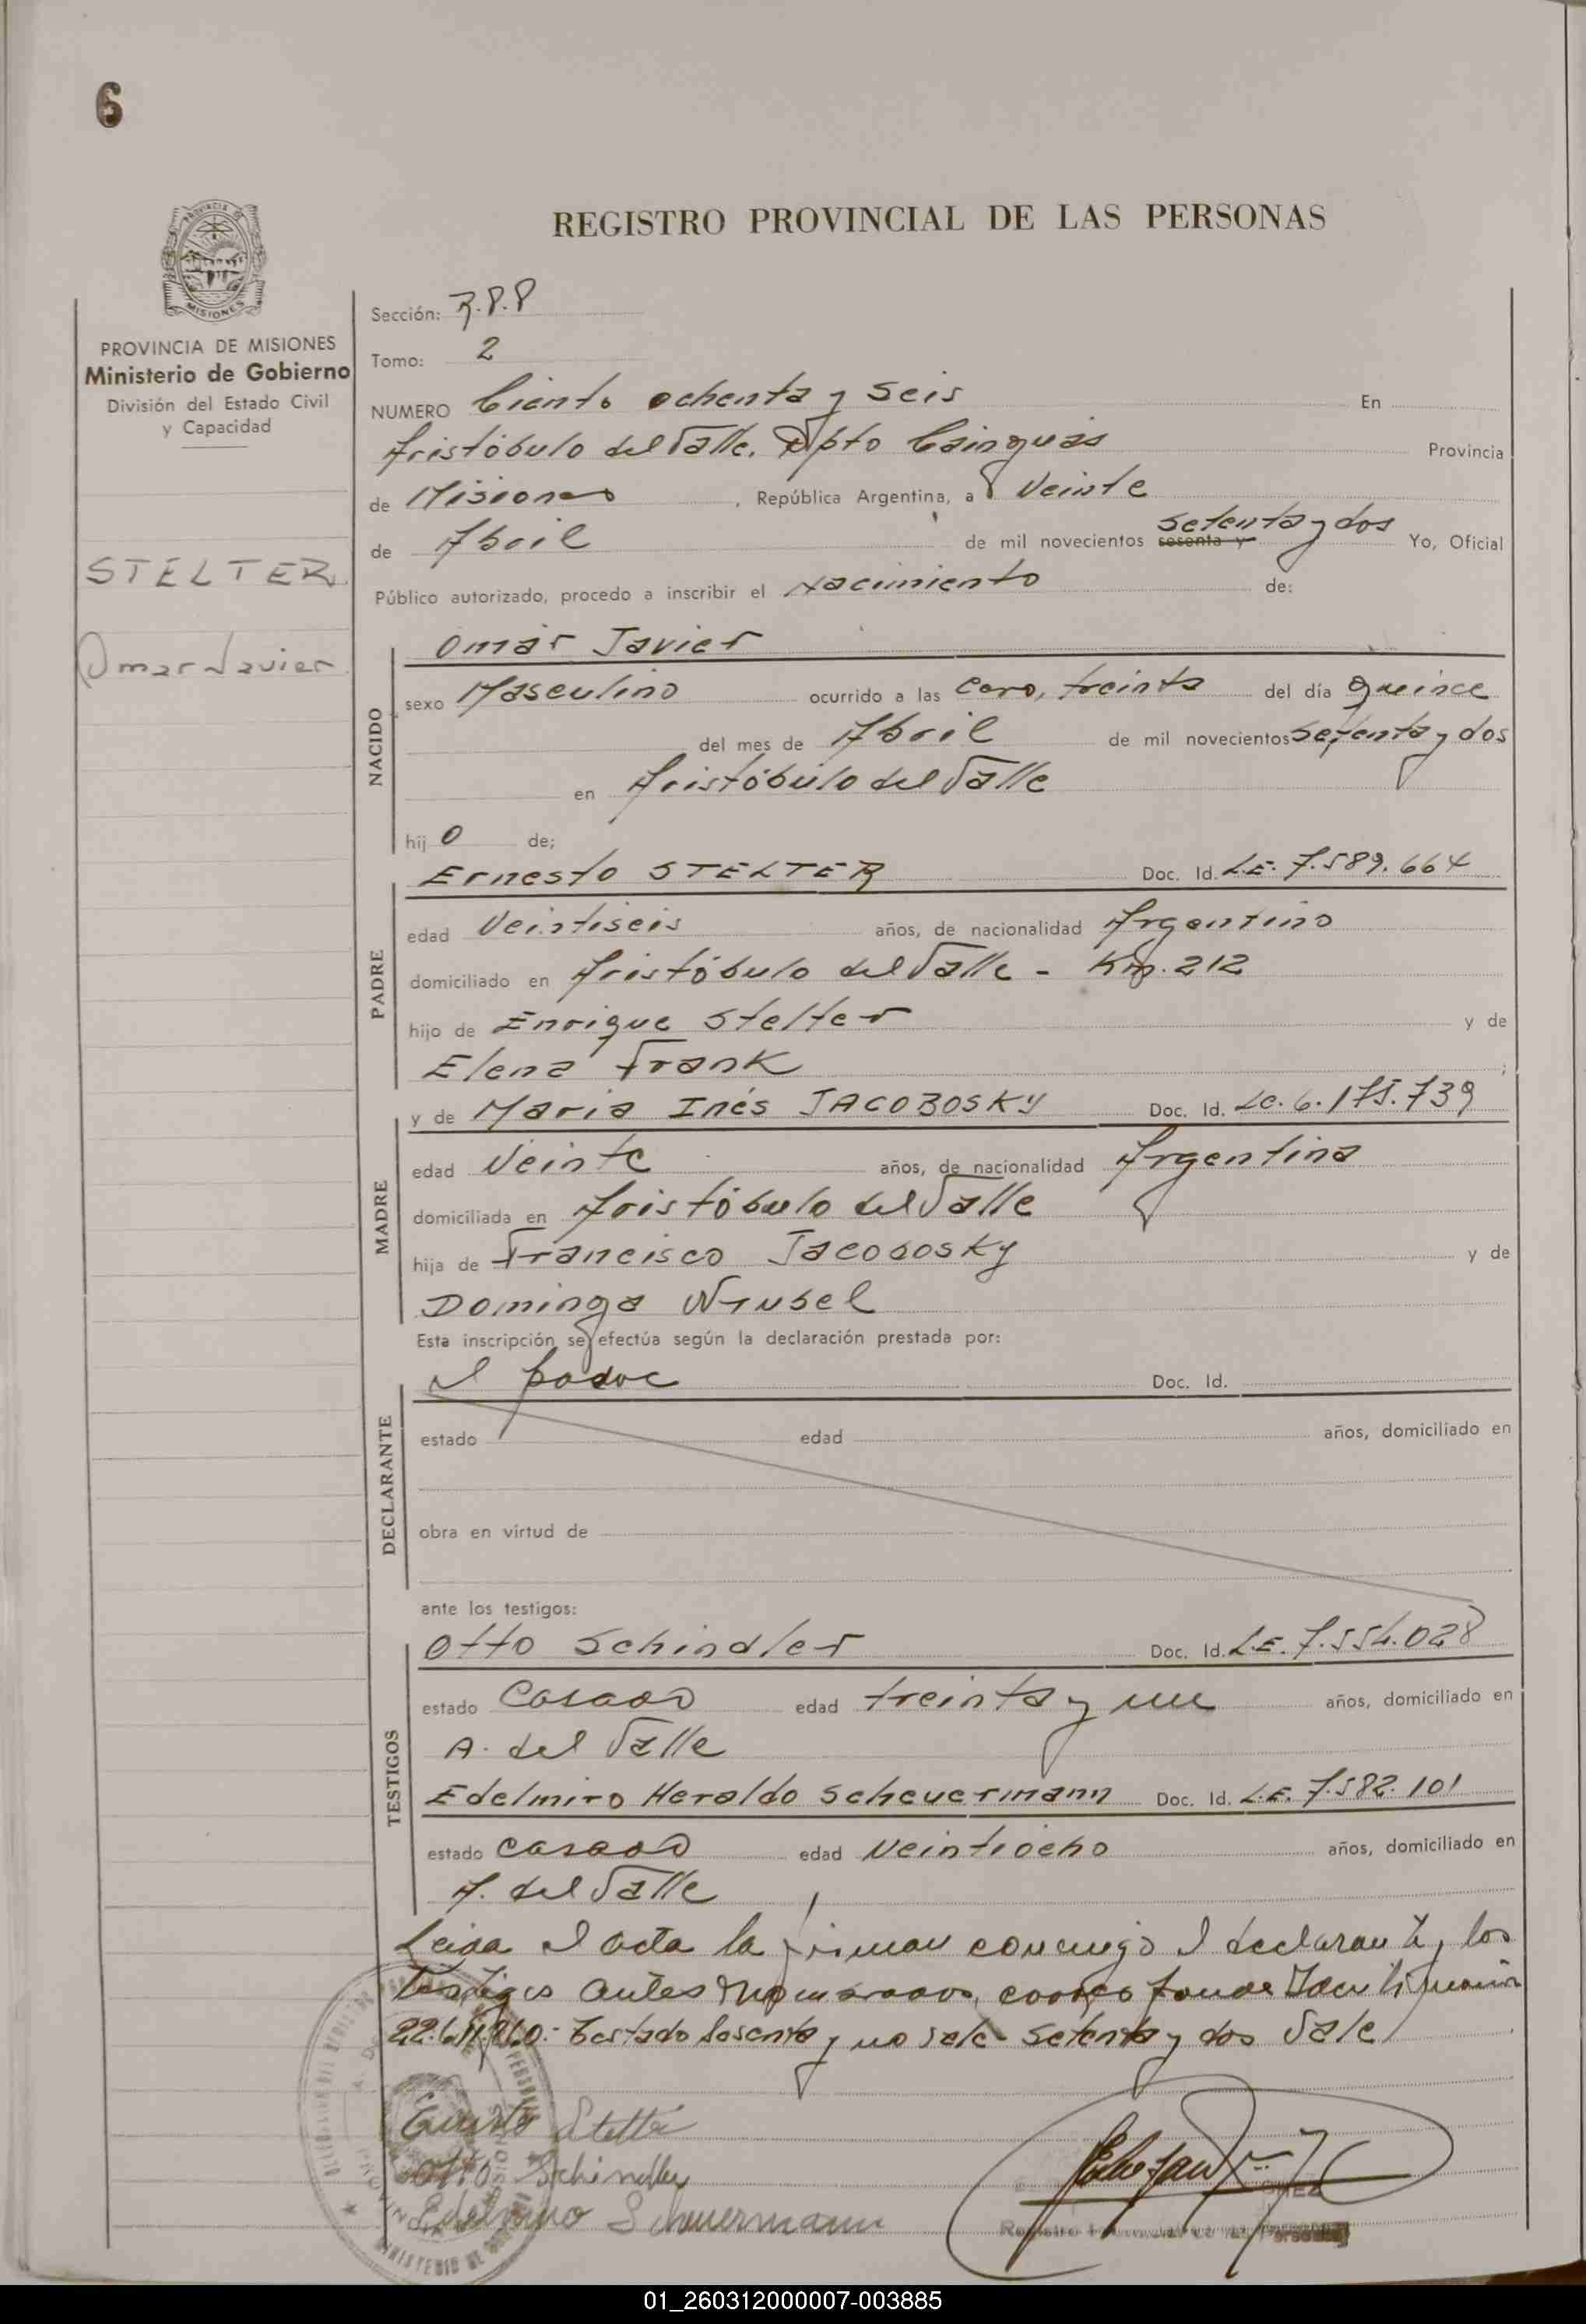 6
REGISTRO PROVINCIAL DE LAS PERSONAS
PROVINCIA DE MISIONES
Ministerio de Gobierno
División del Estado Civil
y Capacidad
STELTER
Omar Javier
Sección: R.P.P
Tomo: 2
NUMERO Ciento ochenta y seis En
Aristóbulo del Valle. Dpto Cainguás Provincia
de Misiones, República Argentina, a Veinte
de Abril de mil novecientos sesenta y setenta y dos Yo, Oficial
Público autorizado, procedo a inscribir el Nacimiento de:
NACIDO
Omar Javier
sexo Masculino ocurrido a las cero, treinta del día quince
del mes de Abril de mil novecientos setenta y dos
en Aristóbulo del Valle
hijo de;
PADRE
Ernesto STELTER Doc. Id. L.E. 7.589.664
edad Veintiseis años, de nacionalidad Argentino
domiciliado en Aristóbulo del Valle - Km. 212
hijo de Enrique Stelter y de
Elena Frank;
MADRE
y de Maria Inés JACOBOSKY Doc. Id. L.C. 6.175.739
edad Veinte años, de nacionalidad Argentina
domiciliada en Aristóbulo del Valle
hija de Francisco Jacobosky y de
Dominga Wrubel
Esta inscripción se efectúa según la declaración prestada por:
DECLARANTE
el padre Doc. Id.
estado edad años, domiciliado en
obra en virtud de
ante los testigos:
TESTIGOS
Otto Schindler Doc. Id. L.E. 7.554.028
estado Casado edad treinta y un años, domiciliado en
A. del Valle
Edelmiro Heraldo Scheuermann Doc. Id. L.E. 7.582.101
estado Casado edad Veintiocho años, domiciliado en
A. del Valle
Leida el acta la firman conmigo el declarante, los
testigos antes nombrados,
Testado sesenta y no vale setenta y dos Vale
Ernesto Stelter
Otto Schindler
Edelmiro Scheuermann
01_260312000007-003885